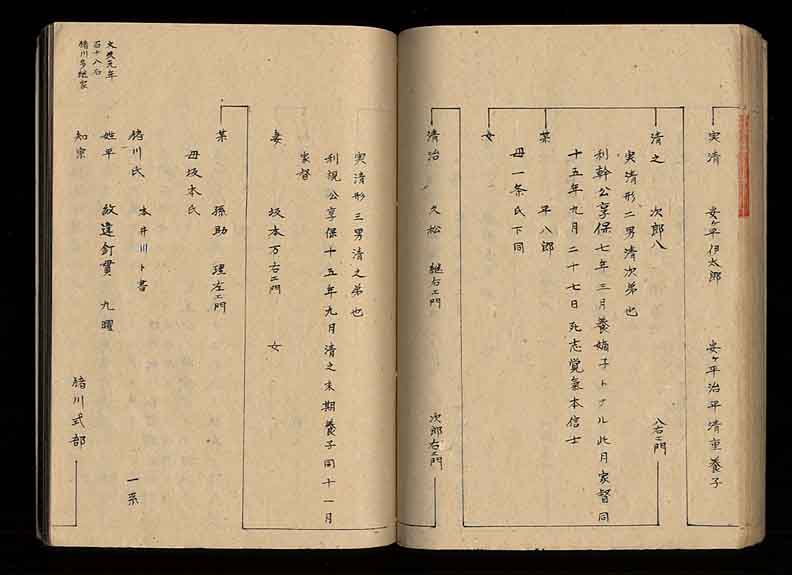 実清 安ヶ平伊太郎 安ヶ平治平清重養子
清之 次郎八 八右エ門
実清形二男清次弟也
利幹公享保七年三月養子トナル此月家督同
十五年九月二十七日死志覚氣本信士
某 平八郎
母一条氏下同
女
清治 久松 継右エ門 次郎右エ門
実清形三男清之弟也
利視公享保十五年九月清之末期養子同十一月
家督
妻 坂本万右エ門 女
某 孫助 理左エ門
母坂本氏
川氏 本井川ト書 一系
姓平 紋違釘貫 九曜
知宗 川式部
文 元年
百十八石
川多 家